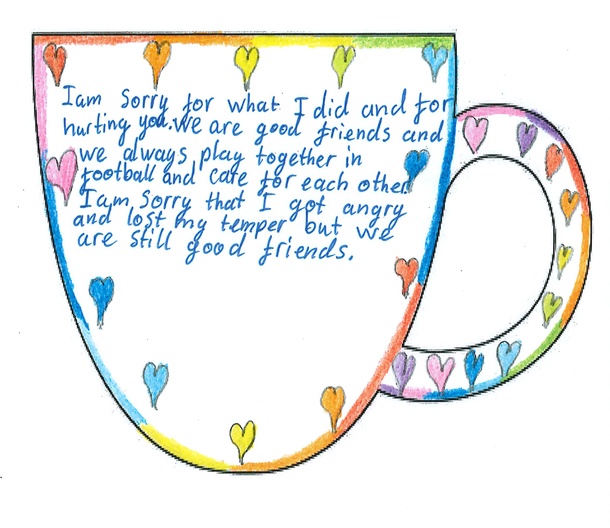 I am sorry for what I did and for
hurting you. We are good friends and
we always play together in
football and care for each other.
I am sorry that I got angry
and lost my temper but we
are still good friends.